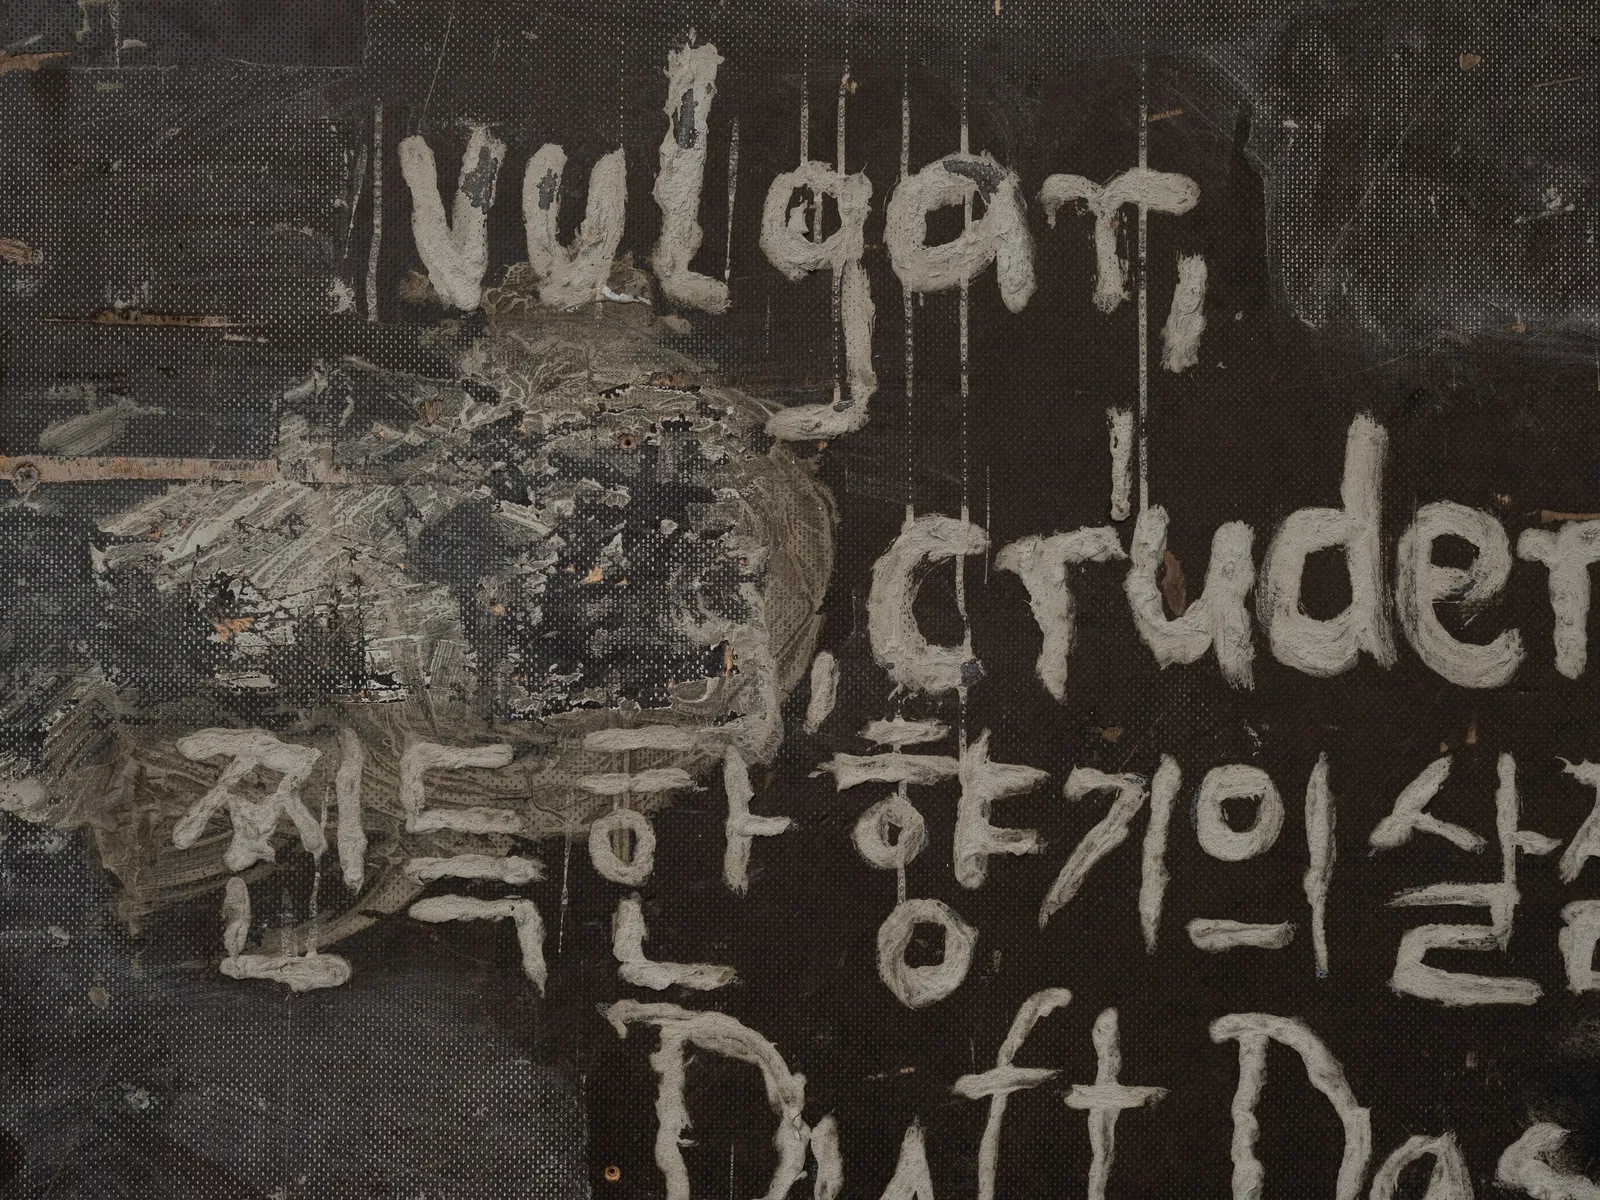 vulgar,
'cruder
찐득한 '향기의 살
Duft Das